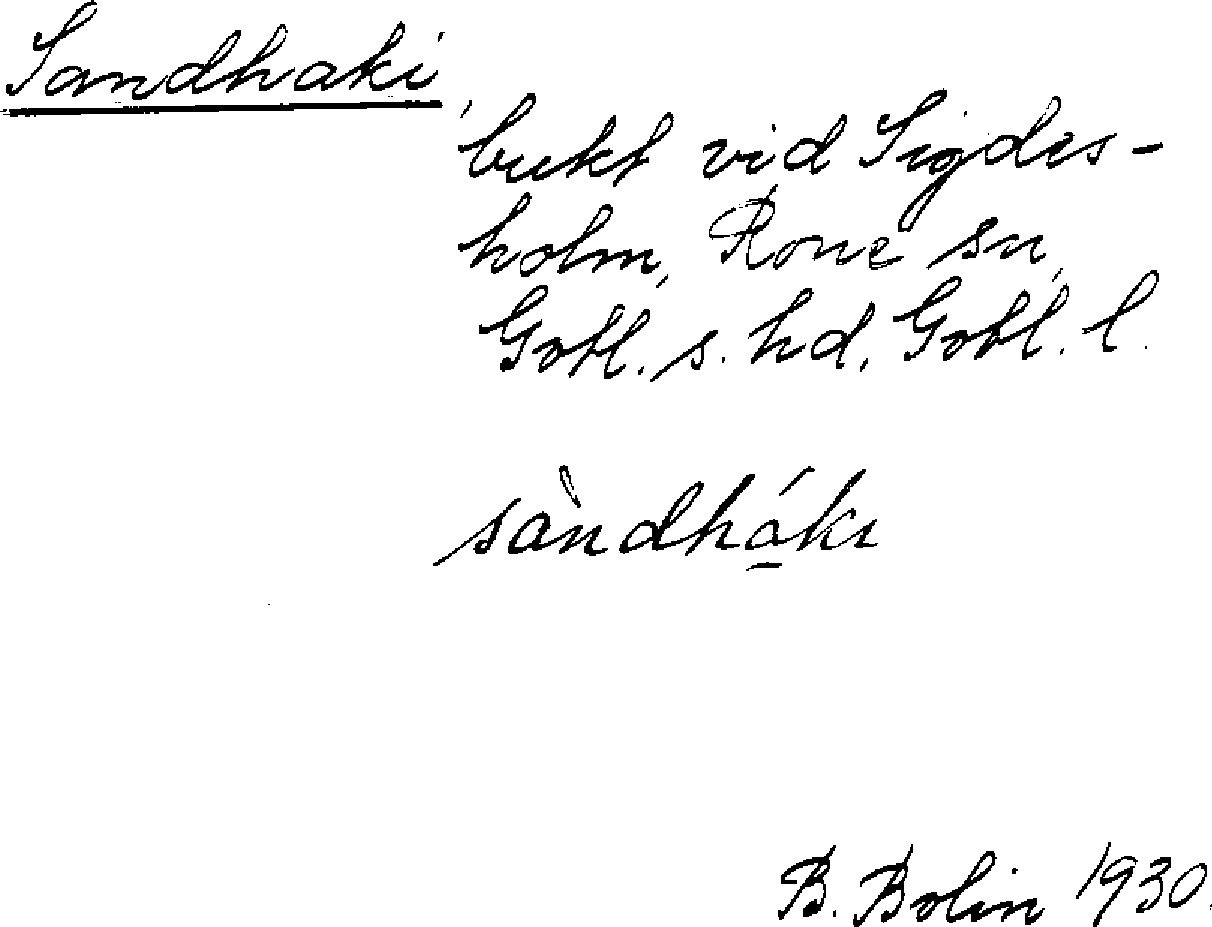 Sandhaki,
bukt vid Sigdes-
holm, Rone sn,
Gotl. s. hd, Gotl. l.
sàndhá̱kı
B. Bolin 1930.